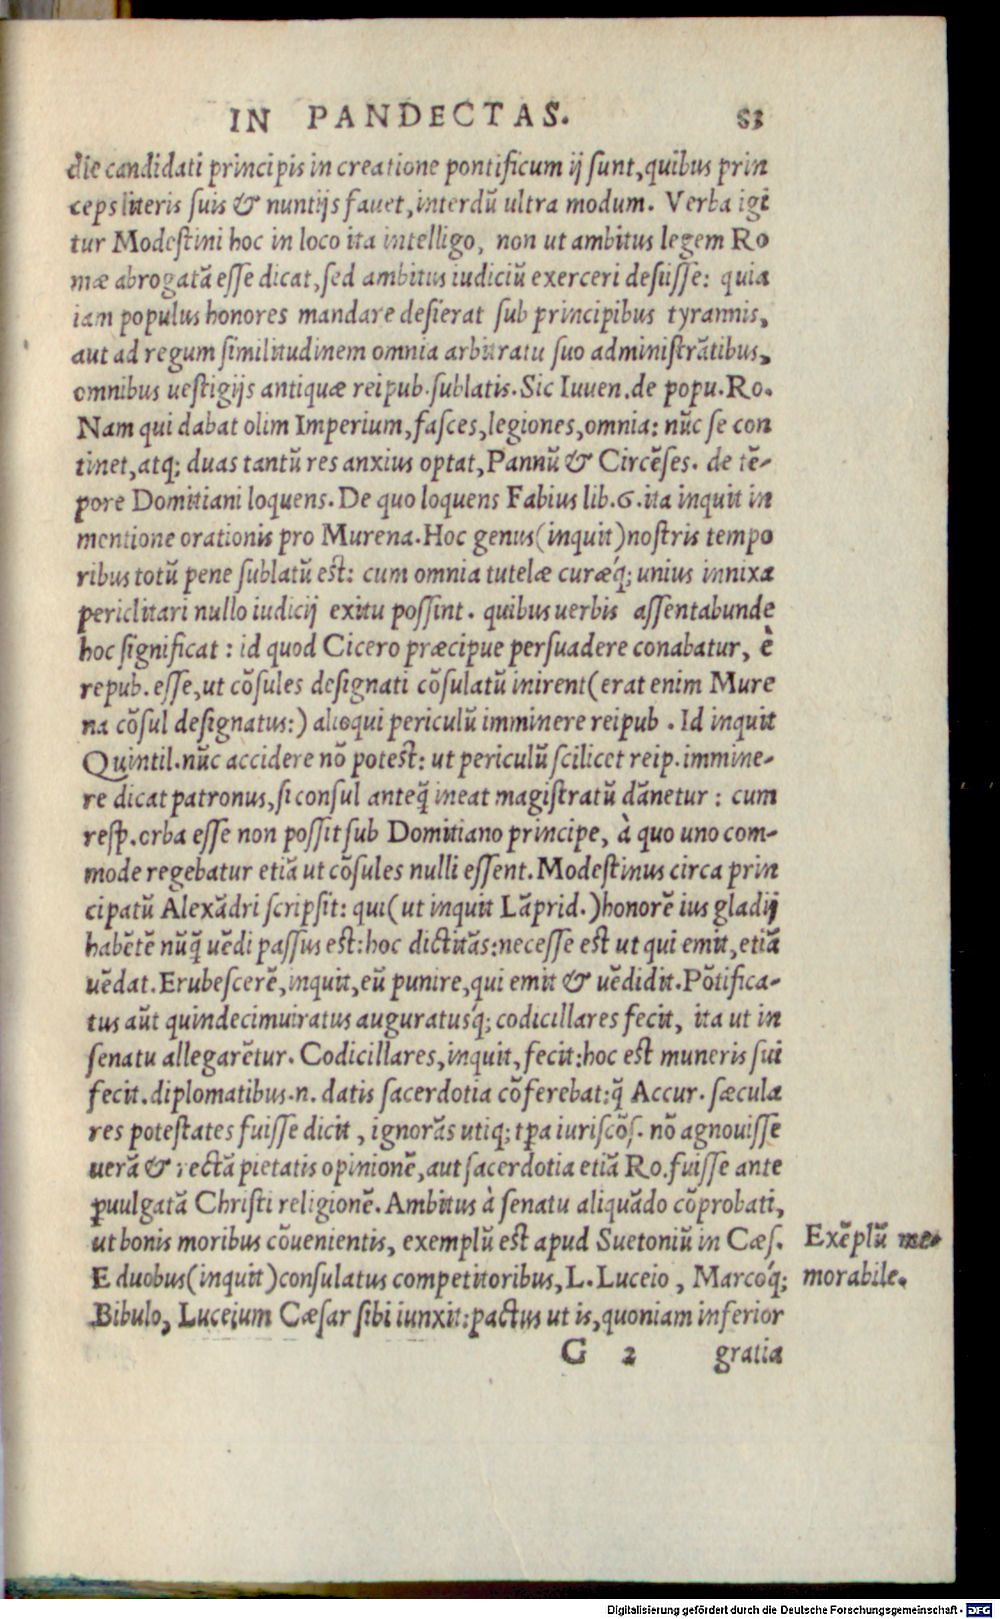 IN PANDECTAS. 83
die candidati principis in creatione pontificum ij sunt, quibus prin
ceps literis suis & nuntijs fauet, interdū ultra modum. Verba igi
tur Modestini hoc in loco ita intelligo, non ut ambitus legem Ro
mæ abrogatā esse dicat, sed ambitus iudiciū exerceri desiisse: quia
iam populus honores mandare desierat sub principibus tyrannis,
aut ad regum similitudinem omnia arbitratu suo administrātibus,
omnibus uestigijs antiquæ reipub. sublatis. Sic Iuuen. de popu. Ro.
Nam qui dabat olim Imperium, fasces, legiones, omnia: nūc se con
tinet, atq; duas tantū res anxius optat, Pannū & Circēses. de tē-
pore Domitiani loquens. De quo loquens Fabius lib. 6. ita inquit in
mentione orationis pro Murena. Hoc genus (inquit) nostris tempo
ribus totū pene sublatū est: cum omnia tutelæ curæq́; unius innixa
periclitari nullo iudicij exitu possint. quibus uerbis assentabunde
hoc significat: id quod Cicero præcipue persuadere conabatur, è
repub. esse, ut cōsules designati cōsulatū inirent (erat enim Mure
na cōsul designatus:) alioqui periculū imminere reipub. Id inquit
Quintil. nūc accidere nō potest: ut periculū scilicet reip. immine-
re dicat patronus, si consul anteq̄ ineat magistratū dānetur: cum
resp̄. orba esse non possit sub Domitiano principe, à quo uno com-
mode regebatur etiā ut cōsules nulli essent. Modestinus circa prin
cipatū Alexādri scripsit: qui (ut inquit Lāprid.) honorē ius gladij
habētē nūq̄ uēdi passus est: hoc dictitās: necesse est ut qui emit, etiā
uēdat. Erubescerē, inquit, eū punire, qui emit & uēdidit. Pōtifica-
tus aūt quindecimuiratus auguratusq́; codicillares fecit, ita ut in
senatu allegarētur. Codicillares, inquit, fecit: hoc est muneris sui
fecit. diplomatibus .n. datis sacerdotia cōferebat: q̄ Accur. sæcula
res potestates fuisse dicit, ignorās utiq; tp̄a iuriscōs. nō agnouisse
uerā & rectā pietatis opinionē, aut sacerdotia etiā Ro. fuisse ante
ꝑuulgatā Christi religionē. Ambitus à senatu aliquādo cōprobati,
ut bonis moribus cōuenientis, exemplū est apud Suetoniū in Cæs.
E duobus (inquit) consulatus competitoribus, L. Luceio, Marcoq́;
Bibulo, Luceium Cæsar sibi iunxit: pactus ut is, quoniam inferior
Exēplū me-
morabile.
G 2 gratia
Digitalisierung gefördert durch die Deutsche Forschungsgemeinschaft - DFG